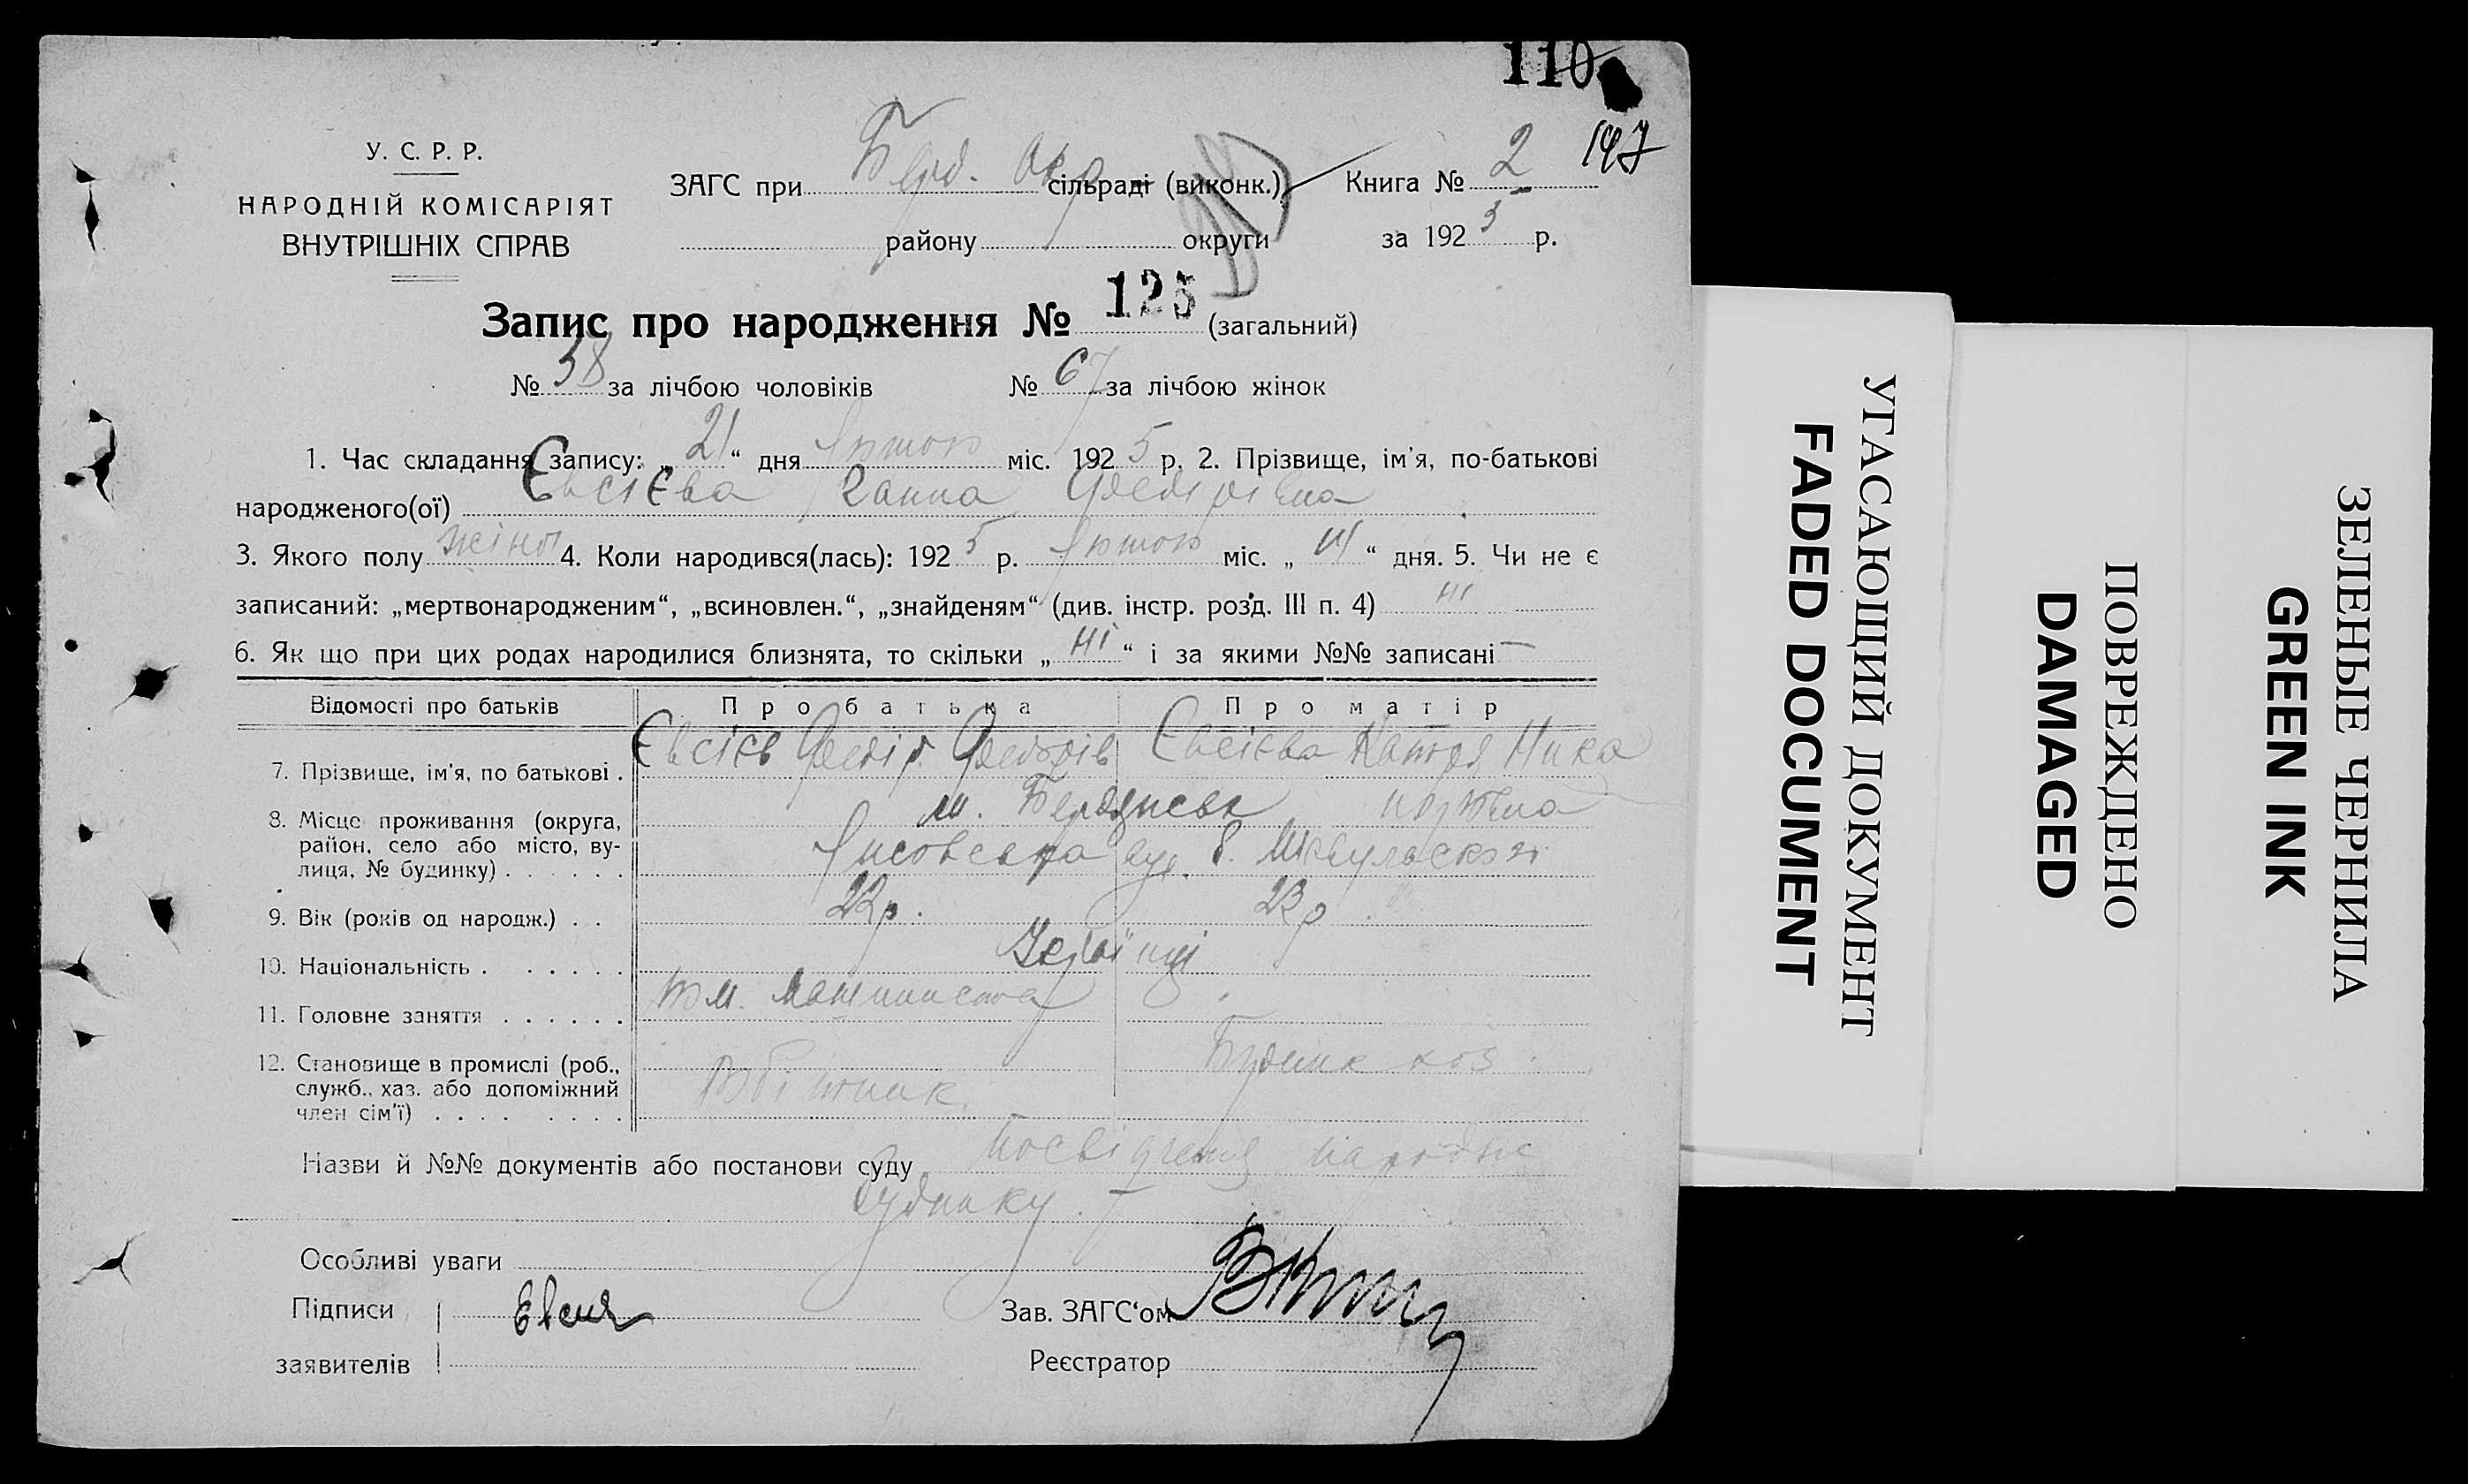 110
147
У. С. Р. Р.
НАРОДНІЙ КОМІСАРІЯТ
ВНУТРІШНІХ СПРАВ
ЗАГС при Берд. Окр сільраді (виконк.) Книга № 2
району округи за 1925 р.
Запис про народження № 125 (загальний)
№ 58 за лічбою чоловіків № 67 за лічбою жінок
1. Час складання запису: „21“ дня Лютого міс. 1925 р. 2. Прізвище, ім'я, по-батькові
народженого(ої) Євсієва Ганна Федорівна
3. Якого полу жіноч 4. Коли народився(лась): 1925 р. Лютого міс. „ “ дня. 5. Чи не є
записаний: „мертвонародженим“, „всиновлен.“, „знайденям“ (див. інстр. розд. III п. 4) ні
6. Як що при цих родах народилися близнята, то скільки „ні“ і за якими №№ записані —
Відомості про батьків Про батька Про матір
7. Прізвище, ім'я, по батькові . Євсієв Федір Федорів Євсієва Катря Ника
норівна
8. Місце проживання (округа, район, село або місто, вулиця, № будинку) . . . . . . м. Бердянськ
Лисовська вул. 8.
9. Вік (років од народж.) . . 22 р. 23 р
10. Національність . . . . . . Українці
11. Головне заняття . . . . . . пом. машиниста
12. Становище в промислі (роб., служб., хаз. або допоміжний член сім'ї) . . . . . . . . Робітник Будинк хоз.
Назви й №№ документів або постанови суду посвідчення народж
будинку.
Особливі уваги
Підписи
заявителів
Зав. ЗАГС‘ом
Реєстратор
УГАСАЮЩИЙ ДОКУМЕНТ
FADED DOCUMENT
ПОВРЕЖДЕНО
DAMAGED
ЗЕЛЕНЫЕ ЧЕРНИЛА
GREEN INK